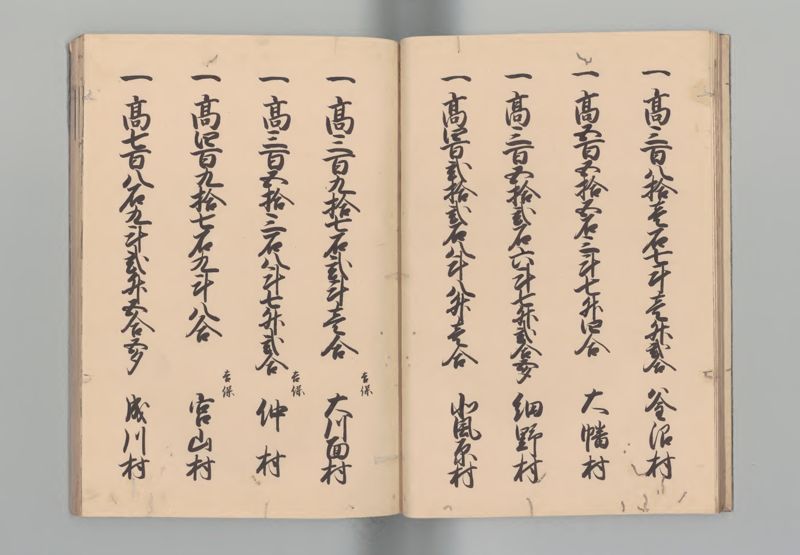 一 高三百八拾壱石七斗壱升弐合 釜沼村
一 高五百五拾五石三斗七升四合 大幡村
一 高三百五拾弐石六斗七升弐合五夕 細野村
一 高四百弐拾弐石八斗八升壱合 北風原村
一 高三百九拾七石弐斗壱合 吉保 大川面村
一 高三百五拾三石八斗七升弐合 吉保 仲村
一 高四百九拾七石九斗八合 吉保 宮山村
一 高七百八石九斗弐升五合五夕 成川村